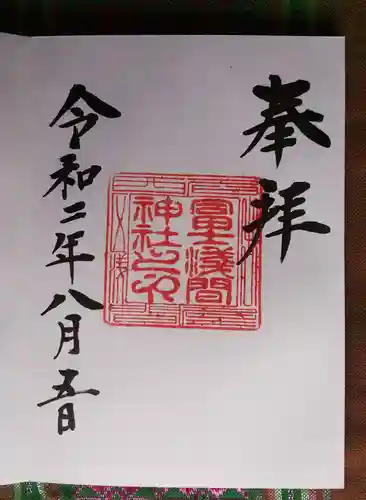 奉拝
冨士浅間
神社之印
令和二年八月五日